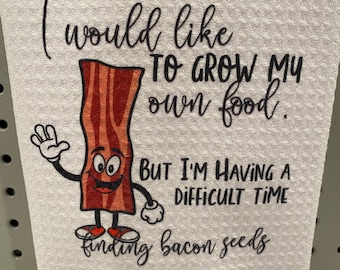 I would like
TO GROW MY
own food.
BUT I'M HAVING A
DIFFICULT TIME
finding bacon seeds